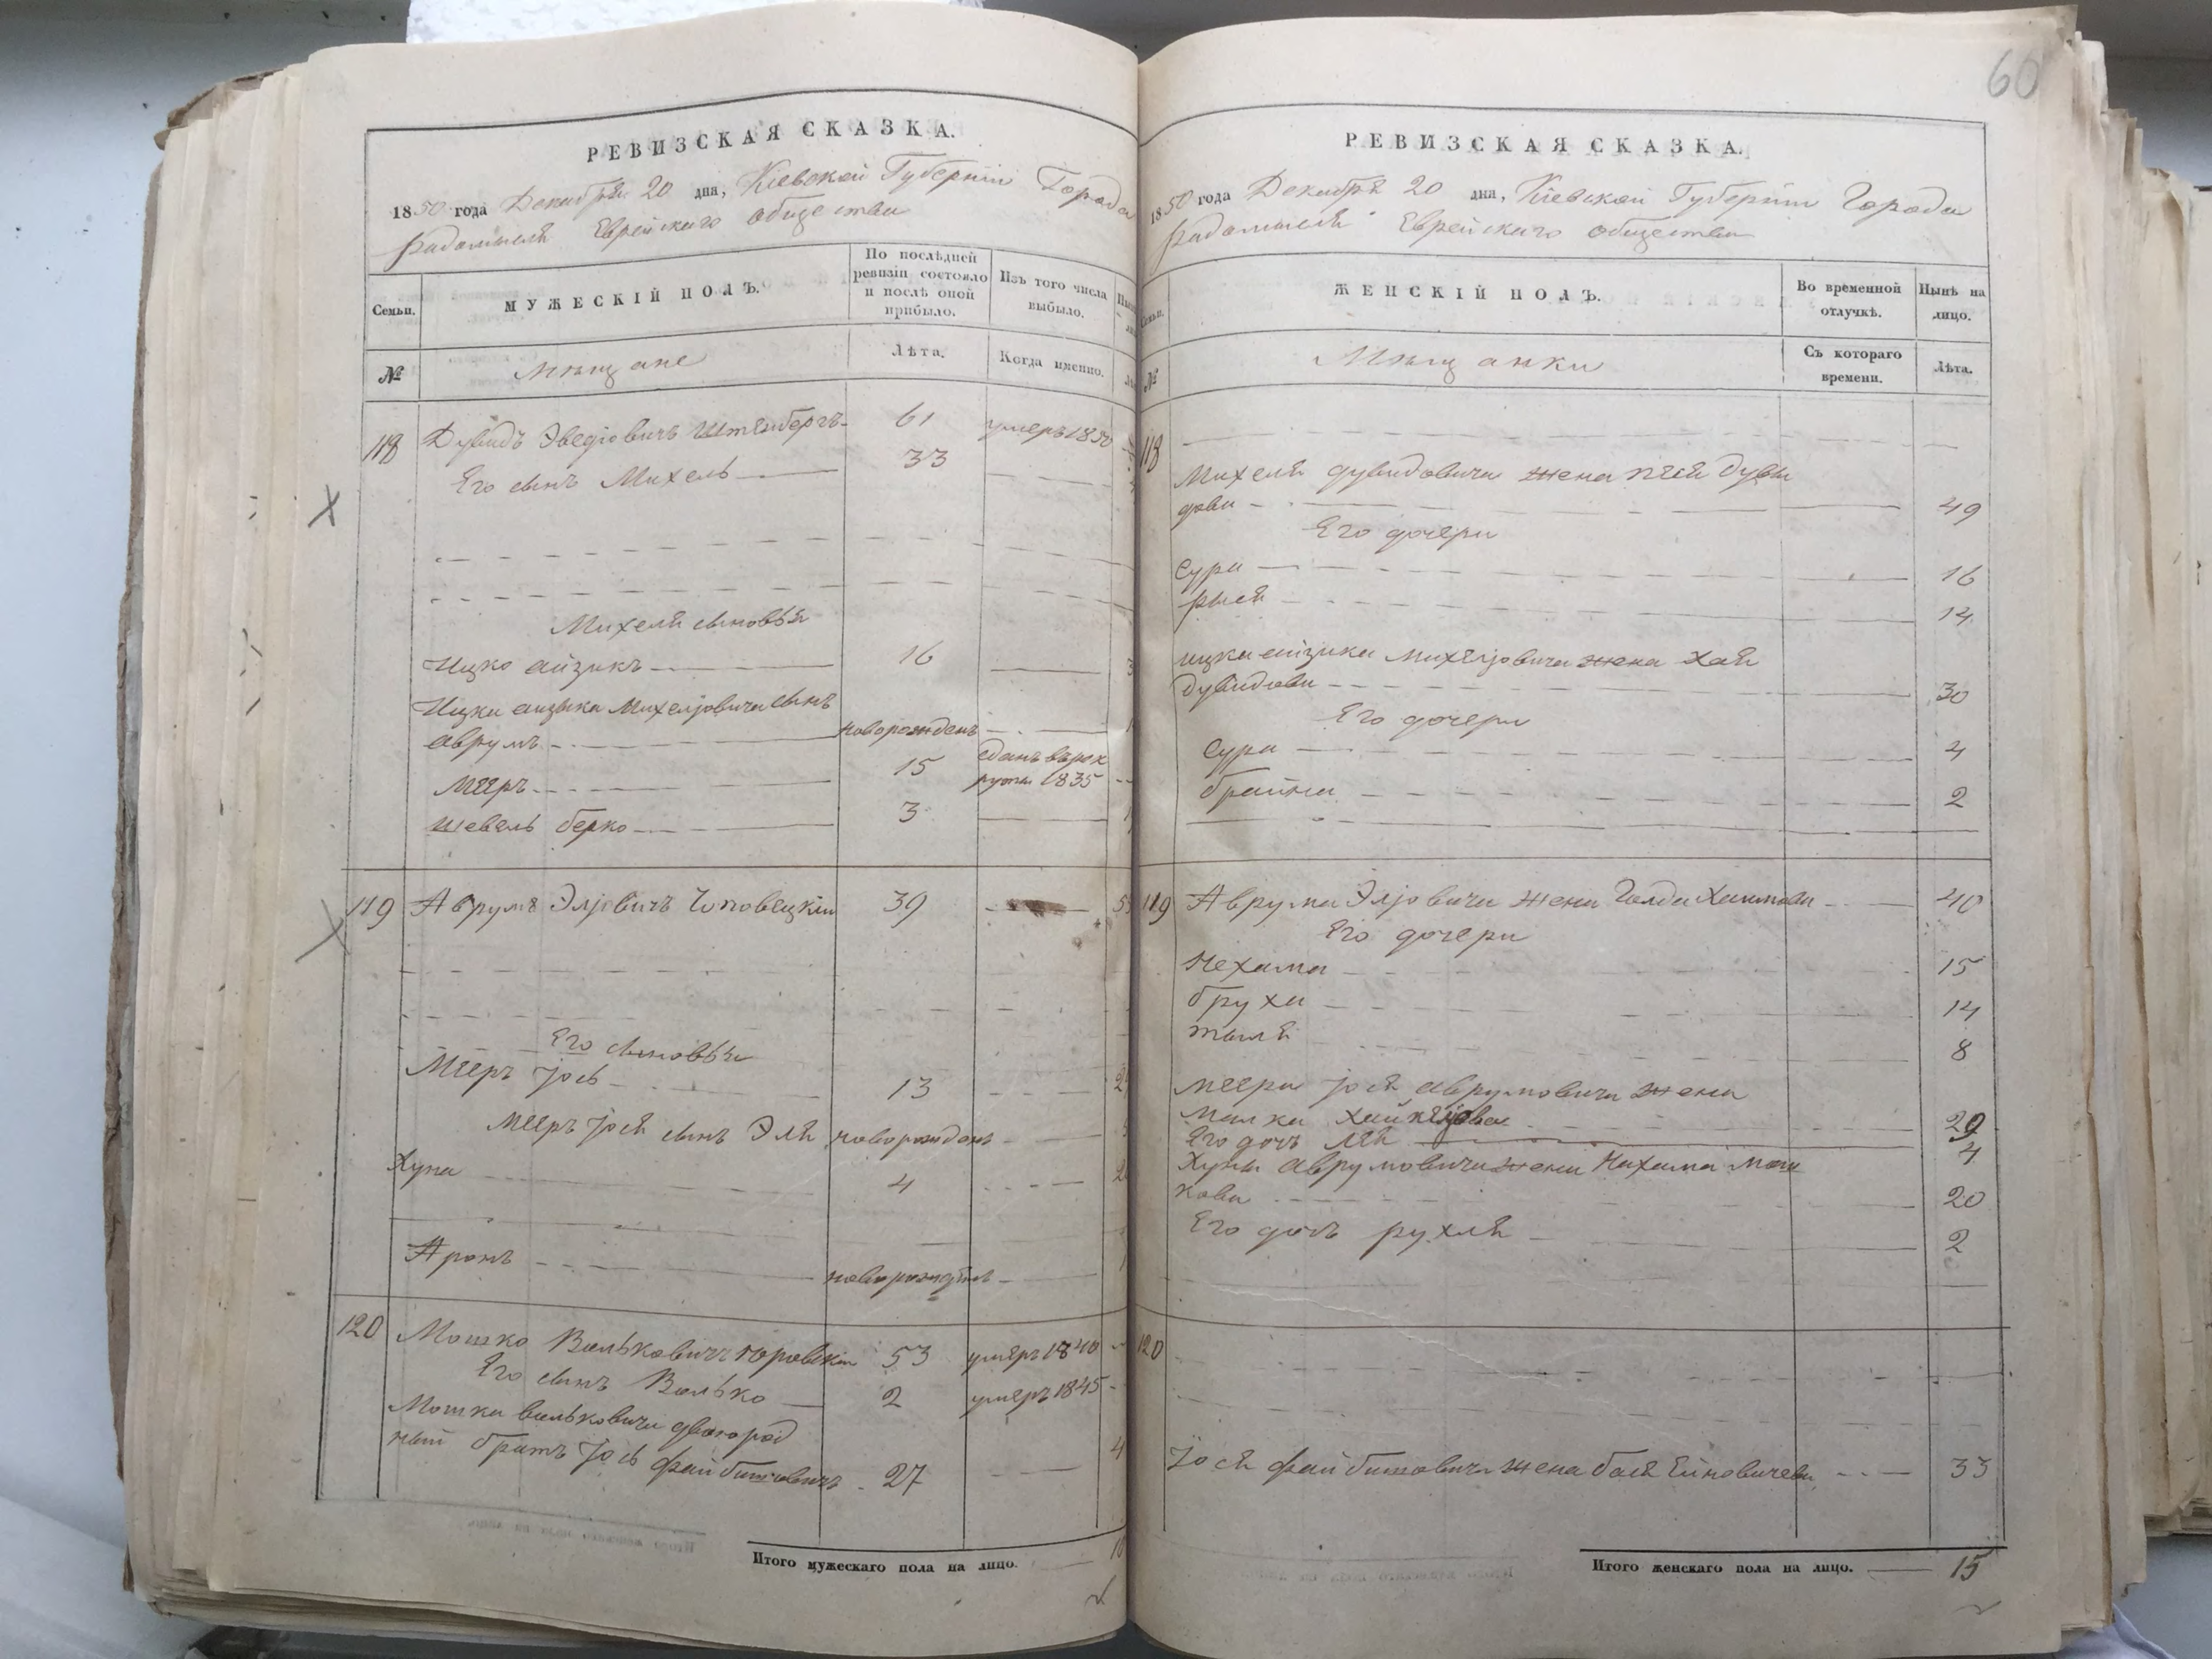 60
РЕВИЗСКАЯ СКАЗКА.
1850 года Декабря 20 дня, Кіевской Губерніи Города
Радомысля Еврейскаго общества
Семьи.
МУЖЕСКІЙ ПОЛЪ.
По послѣдней
ревизіи состояло
и послѣ оной
прибыло.
Изъ того числа
выбыло.
№
мѣщане
Лѣта.
Когда именно.
118 Дувидъ Штенбергъ 61 умеръ 1850
Его сынъ Михель 33
Михеля сыновья
Ицко айзикъ 16
Ицка айзыка Михелювича сынъ
аврумъ новорожденъ
мееръ 15 сданъ въ рек
руты 1835
шевель берко 3
119 Аврумъ Элiовичъ Чоповецкiй 39
Его сыновья
Мееръ Iось 13
Мееръ Iося сынъ Эля новорожденъ
Хуна 4
Аронъ новорожденъ
120 Мошко Вольковичъ 53 умеръ 1840
Его сынъ Волько 2 умеръ 1845
Мошки вольковича двоюрод
ный братъ Iось файбишовичъ 27
Итого мужескаго пола на лицо.
РЕВИЗСКАЯ СКАЗКА.
1850 года Декабря 20 дня, Кіевской Губерніи Города
Радомысля Еврейскаго общества
Семьи.
ЖЕНСКІЙ ПОЛЪ.
Во временной
отлучкѣ.
Нынѣ на
лицо.
№
Мѣщанки
Съ котораго
времени.
Лѣта.
118
Михеля дувидовича жена дуви
дова 49
Его дочери
Сура 16
рыся 14
ицка айзика Михелiовича жена Хая
дувидова 30
Его дочери
Сура 4
брайна 2
119 Аврума Элiовича жена Голда Хаимова 40
Его дочери
Нехама 15
бруха 14
8
меера iося аврумовича жена
малка 29
Его дочь лея 4
Хуны аврумовича жена Нахама мош
кова 20
Его дочь рухля 2
120
Iося файбишовича жена бася 33
Итого женскаго пола на лицо. 15